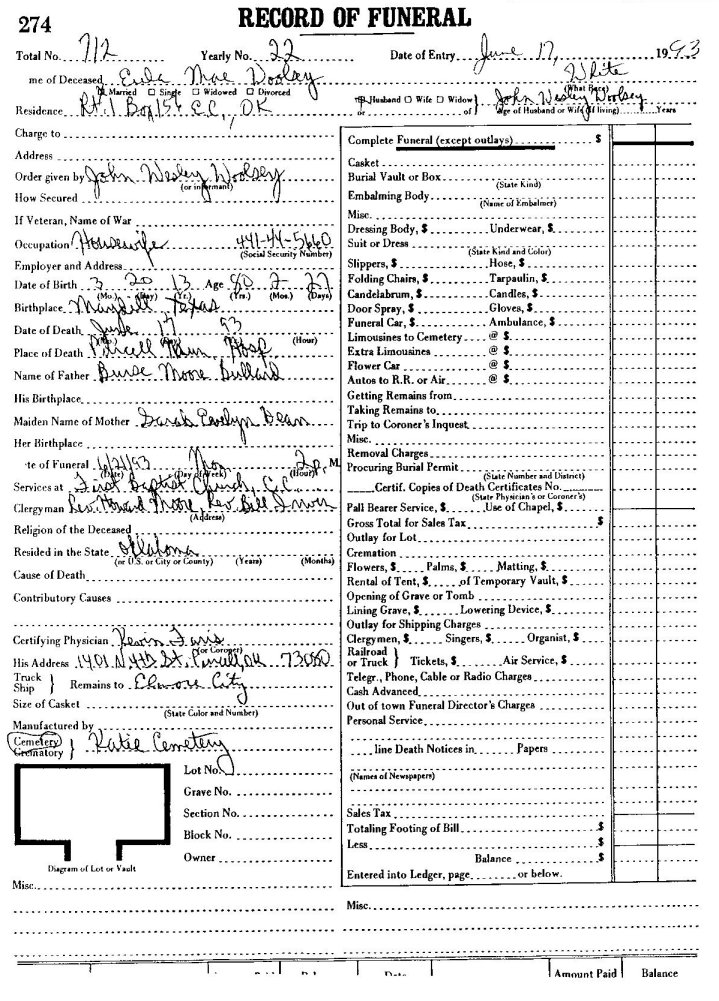 274
RECORD OF FUNERAL
Total No. 712 Yearly No. 22 Date of Entry June 17, 1993
me of Deceased Eula Mae Woolsey White
Married Single Widowed Divorced (What Race)
Residence Rt. 1 Box 156 C.C., OK Husband Wife Widow or of John Wesley Woolsey
Age of Husband or Wife (if living) Years
Charge to
Address
Order given by John Wesley Woolsey
(or informant)
How Secured
If Veteran, Name of War
Occupation Housewife 441-44-5660
(Social Security Number)
Employer and Address
Date of Birth 3 20 13 Age 80 2 27
(Mo.) (Day) (Yr.) (Yrs.) (Mos.) (Days)
Birthplace Texas
Date of Death June 17 93
(Mo.) (Day) (Yr.) (Hour)
Place of Death Purcell Mun Hosp
Name of Father Burse Moore Bullard
His Birthplace
Maiden Name of Mother Sarah Evelyn Dean
Her Birthplace
te of Funeral 6/21/93 Mon 2 P. M.
(Date) (Day of Week) (Hour)
Services at First Baptist Church, C.C.
Clergyman Rev. Howard Moore, Rev. Bill
(Address)
Religion of the Deceased
Resided in the State Oklahoma
(or U.S. or City or County) (Years) (Months)
Cause of Death
Contributory Causes
Certifying Physician Kevin
(or Coroner)
His Address 1401 N 4th St. Purcell, OK 73080
Truck
Ship } Remains to Elmore City
Size of Casket
(State Color and Number)
Manufactured by
Cemetery
Crematory } Katie Cemetery
Lot No.
Grave No.
Section No.
Block No.
Owner
Diagram of Lot or Vault
Misc.
Complete Funeral (except outlays) $
Casket
Burial Vault or Box
(State Kind)
Embalming Body
(Name of Embalmer)
Misc.
Dressing Body, $ Underwear, $
Suit or Dress
(State Kind and Color)
Slippers, $ Hose, $
Folding Chairs, $ Tarpaulin, $
Candelabrum, $ Candles, $
Door Spray, $ Gloves, $
Funeral Car, $ Ambulance, $
Limousines to Cemetery @ $
Extra Limousines @ $
Flower Car @ $
Autos to R.R. or Air @ $
Getting Remains from
Taking Remains to
Trip to Coroner's Inquest
Misc.
Removal Charges
Procuring Burial Permit
(State Number and District)
Certif. Copies of Death Certificates No.
(State Physician's or Coroner's)
Pall Bearer Service, $ Use of Chapel, $
Gross Total for Sales Tax $
Outlay for Lot
Cremation
Flowers, $ Palms, $ Matting, $
Rental of Tent, $ of Temporary Vault, $
Opening of Grave or Tomb
Lining Grave, $ Lowering Device, $
Outlay for Shipping Charges
Clergymen, $ Singers, $ Organist, $
Railroad
or Truck } Tickets, $ Air Service, $
Telegr., Phone, Cable or Radio Charges
Cash Advanced
Out of town Funeral Director's Charges
Personal Service
line Death Notices in Papers
(Names of Newspapers)
Sales Tax
Totaling Footing of Bill $
Less $
Balance $
Entered into Ledger, page or below.
Misc.
Amount Paid Balance